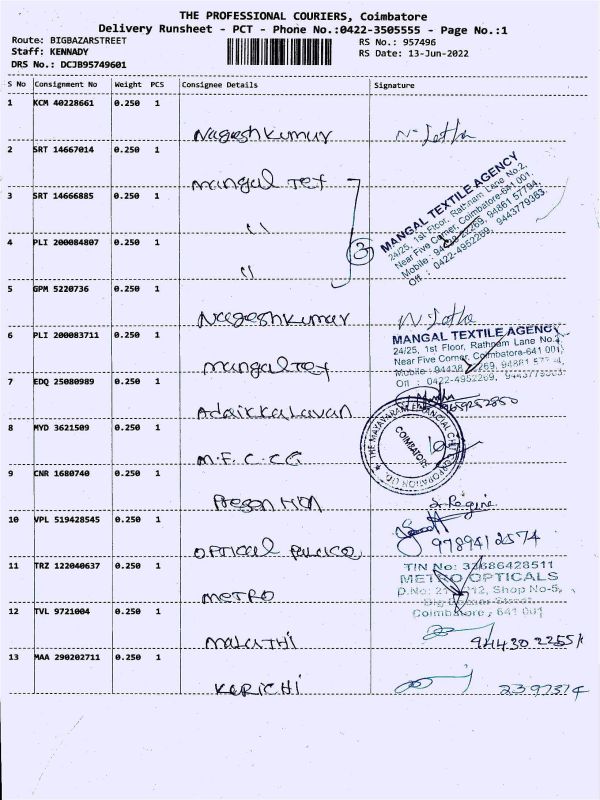 THE PROFESSIONAL COURIERS, Coimbatore
Delivery Runsheet - PCT - Phone No.:0422-3505555 - Page No.:1
Route: BIGBAZARSTREET RS No.: 957496
Staff: KENNADY RS Date: 13-Jun-2022
DRS No.: DCJB95749601
S No Consignment No Weight PCS Consignee Details Signature
1 KCM 40228661 0.250 1
Nageshkumar N. Latha
2 SRT 14667014 0.250 1
Mangal Tex
3 SRT 14666885 0.250 1
"
4 PLI 200084807 0.250 1
"
3
MANGAL TEXTILE AGENCY
24/25, 1st Floor, Rathnam Lane No.2,
Near Five Corner, Coimbatore-641 001.
Mobile : 94438 22269, 94861 57794,
Off : 0422-4952269, 9443779363.
5 GPM 5220736 0.250 1
Nageshkumar N. Latha
6 PLI 200083711 0.250 1
Mangal Tex
MANGAL TEXTILE AGENCY
24/25, 1st Floor, Rathnam Lane No.2,
Near Five Corner, Coimbatore-641 001.
Mobile : 94438 22269,
Off : 0422-4952269,
7 EDQ 25080989 0.250 1
Adaikkalavan 9659252850
8 MYD 3621509 0.250 1
M.F.C.CG
COIMBATORE
9 CNR 1680740 0.250 1
10 VPL 519428545 0.250 1
Optical Palace 9789412574
11 TRZ 122040637 0.250 1
METRO
TIN No: 33686428511
METRO OPTICALS
Shop No-5,
Coimbatore, 641 001
12 TVL 9721004 0.250 1
MALATHI
13 MAA 290202711 0.250 1
KERICHI 2397374